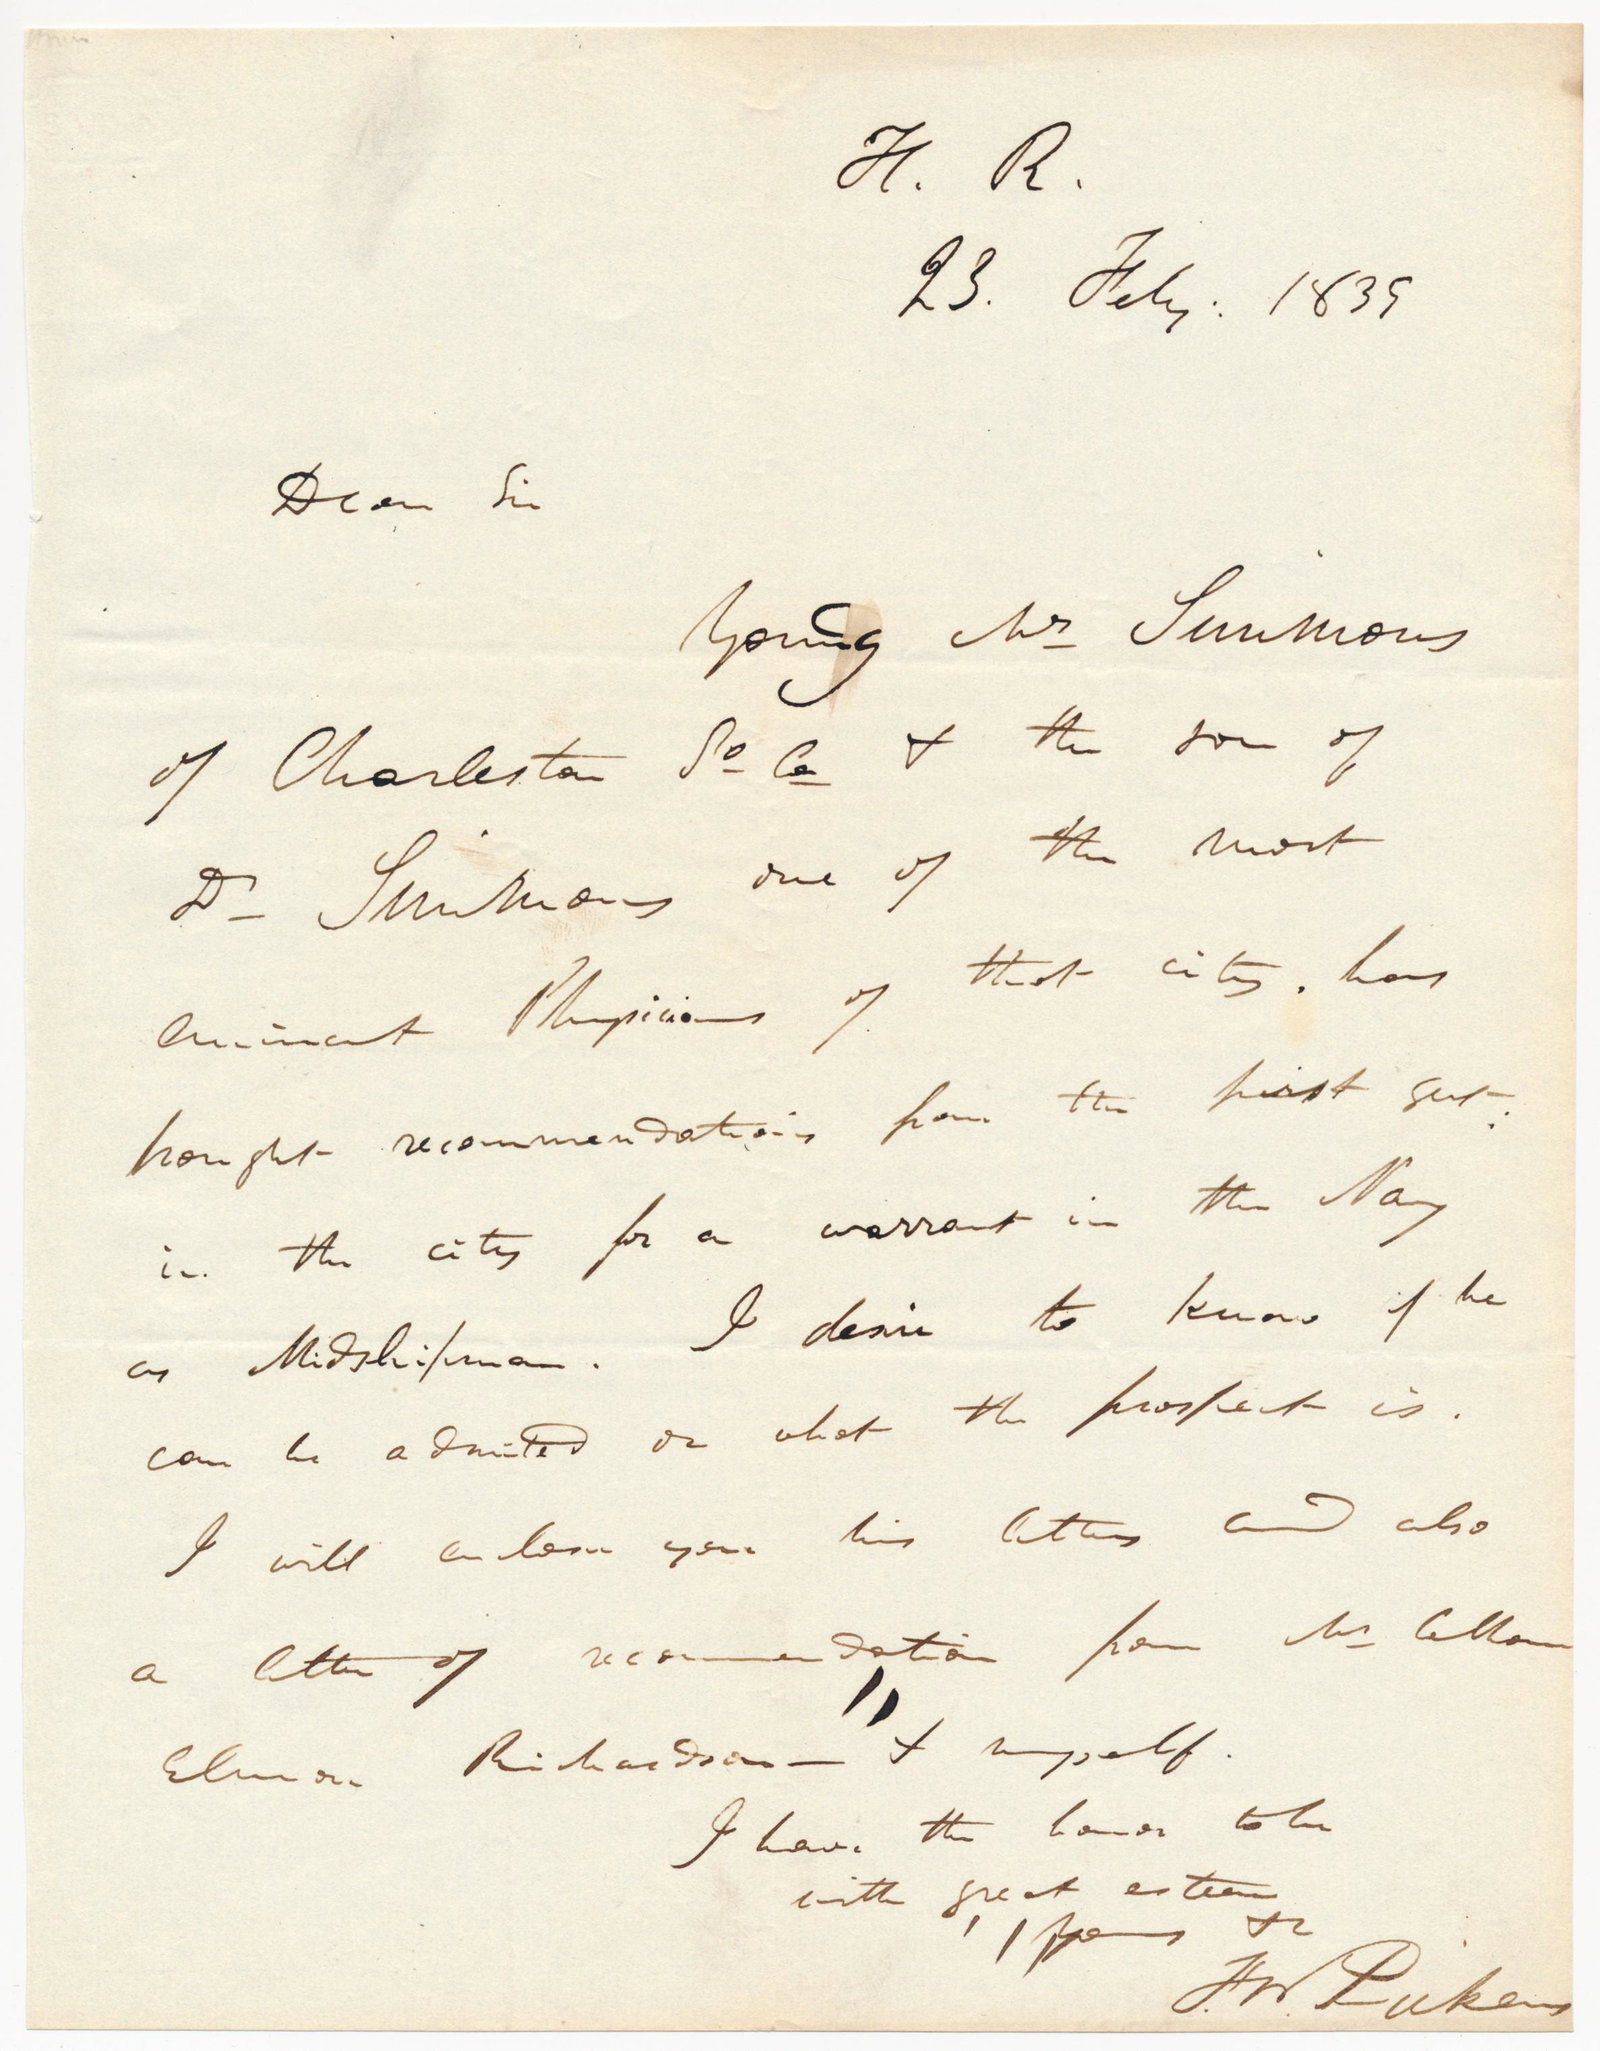 H. R.
23. Feby. 1839
Dear Sir
Young Mr Simmons
of Charleston So Ca & the son of
Dr Simmons one of the most
eminent Physicians of that city, has
brought recommendations from the first gent:
in the city for a warrant in the Navy
as Midshipman. I desire to know if he
can be admited or what the prospect is.
I will enclose you his letters and also
a letter of recommendation from Mr Calhoun
Elmore Richardson & myself.
I have the honor to be
with great esteem
Yours &c
F. W. Pickens